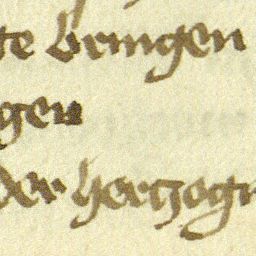 te bringen
gen
der hertzog